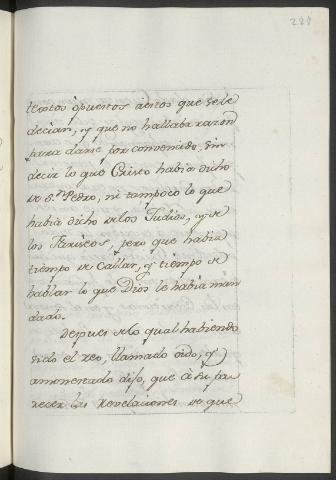 288
textos opuestos à estos que se le
decian, y que no hallaba razon
para darse por convencido, sin
decir lo que Cristo habia dicho
de S.n Pedro, ni tampoco lo que
habia dicho de los Judios, y de
los Fariseos, pero que habia
tiempo de Callar, y tiempo de
hablar lo que Dios le habia man
dado.
Depues de lo qual habiendo
sido el reo, llamado oido, y
amonestado dijo, que à su pa
recer las Revelaciones de que